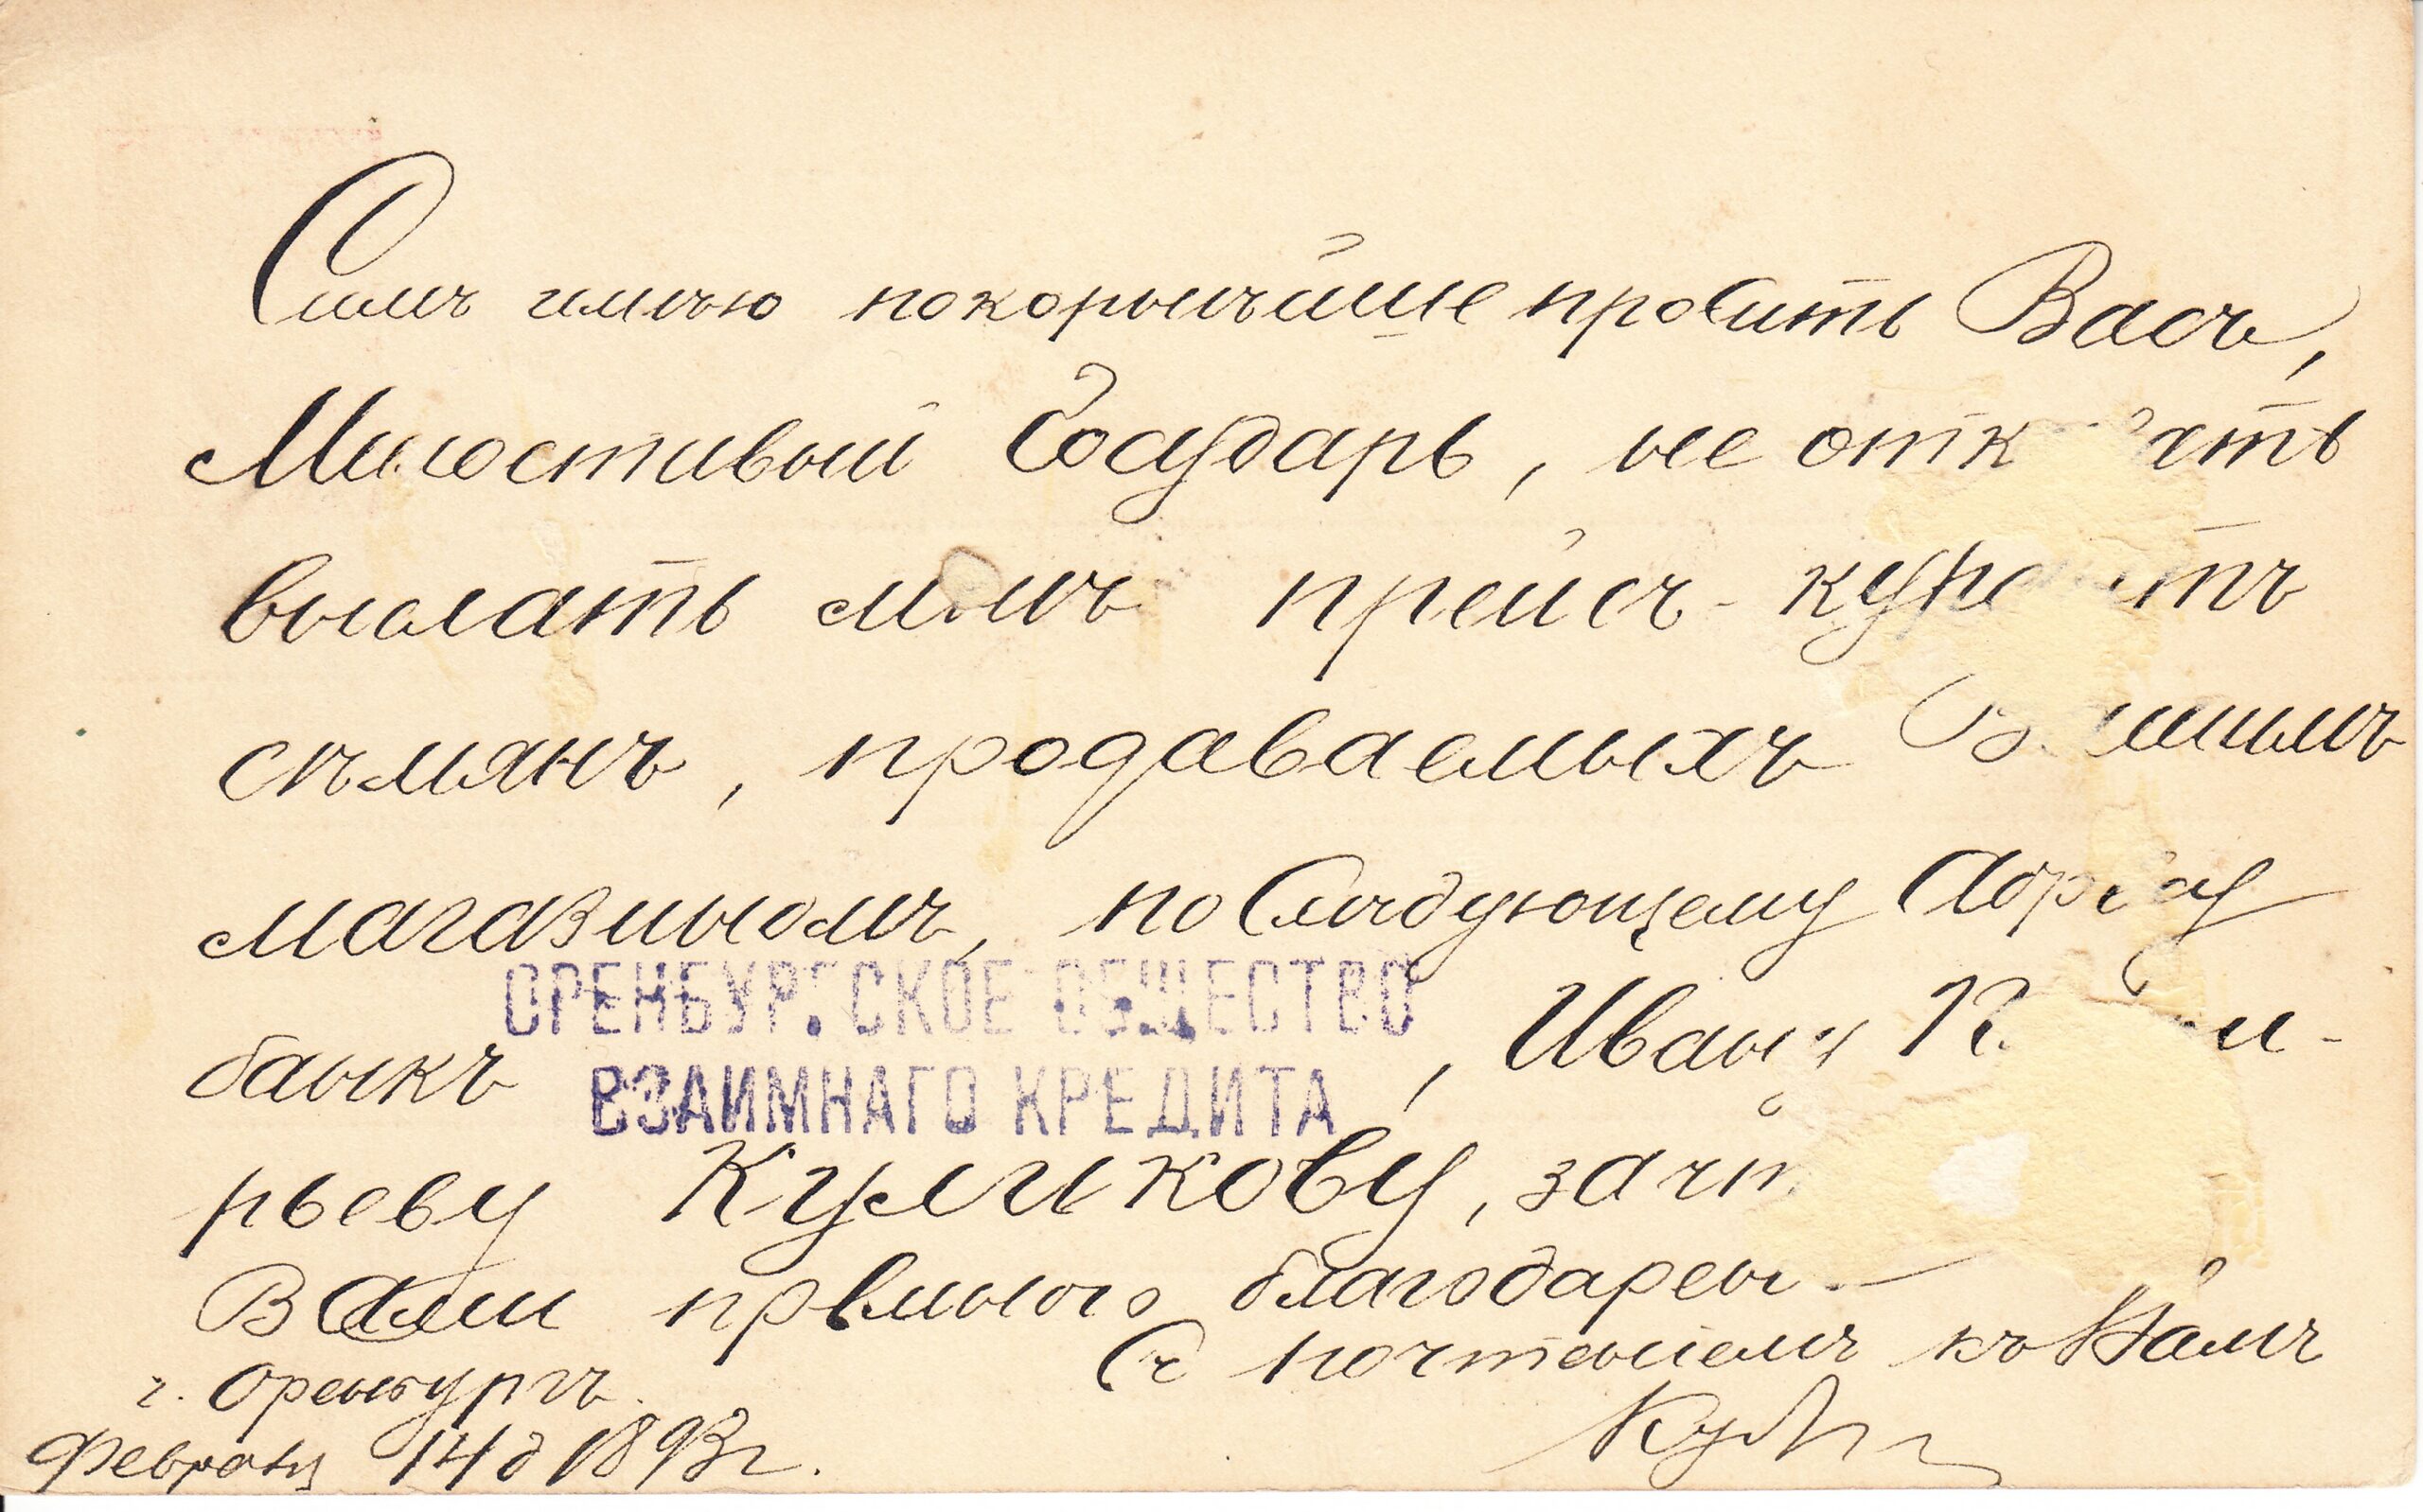 Симъ имѣю покорнѣйше просить Васъ,
Милостивый Государь, не отк
выслать мнѣ прейсъ-курантъ
сѣмянъ, продаваемыхъ Вашимъ
магазиномъ, по Слѣдующему Адресу
ОРЕНБУРГСКОЕ ОБЩЕСТВО
банкъ , Ивану
ВЗАИМНАГО КРЕДИТА
рьеву Куликову, зачт
Вами премного благодарен
Съ почтенiемъ къ Вамъ
г. Оренбургъ.
Февраля 14 д 1893 г.